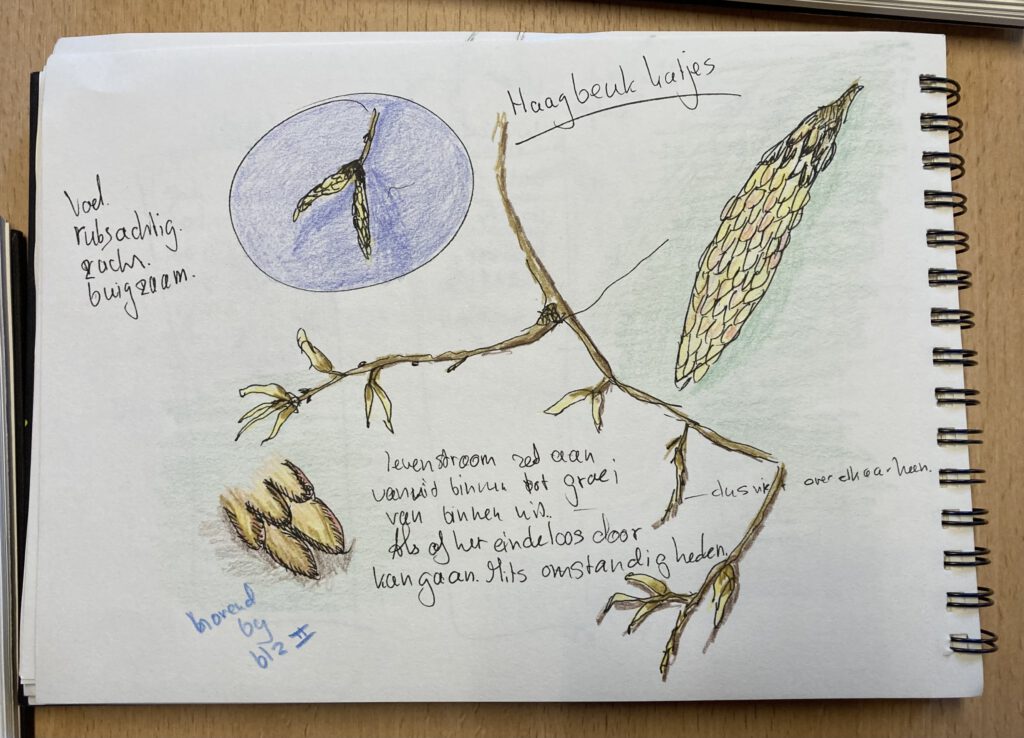 Haagbeuk katjes
Voel.
rubsachtig.
zacht.
buigzaam.
levenstroom zed aan
vanuit binnen tot groei
van binnen uit.
Als of het eindeloos door
kan gaan. Mits omstandigheden.
over elkaar heen.
by
blz II